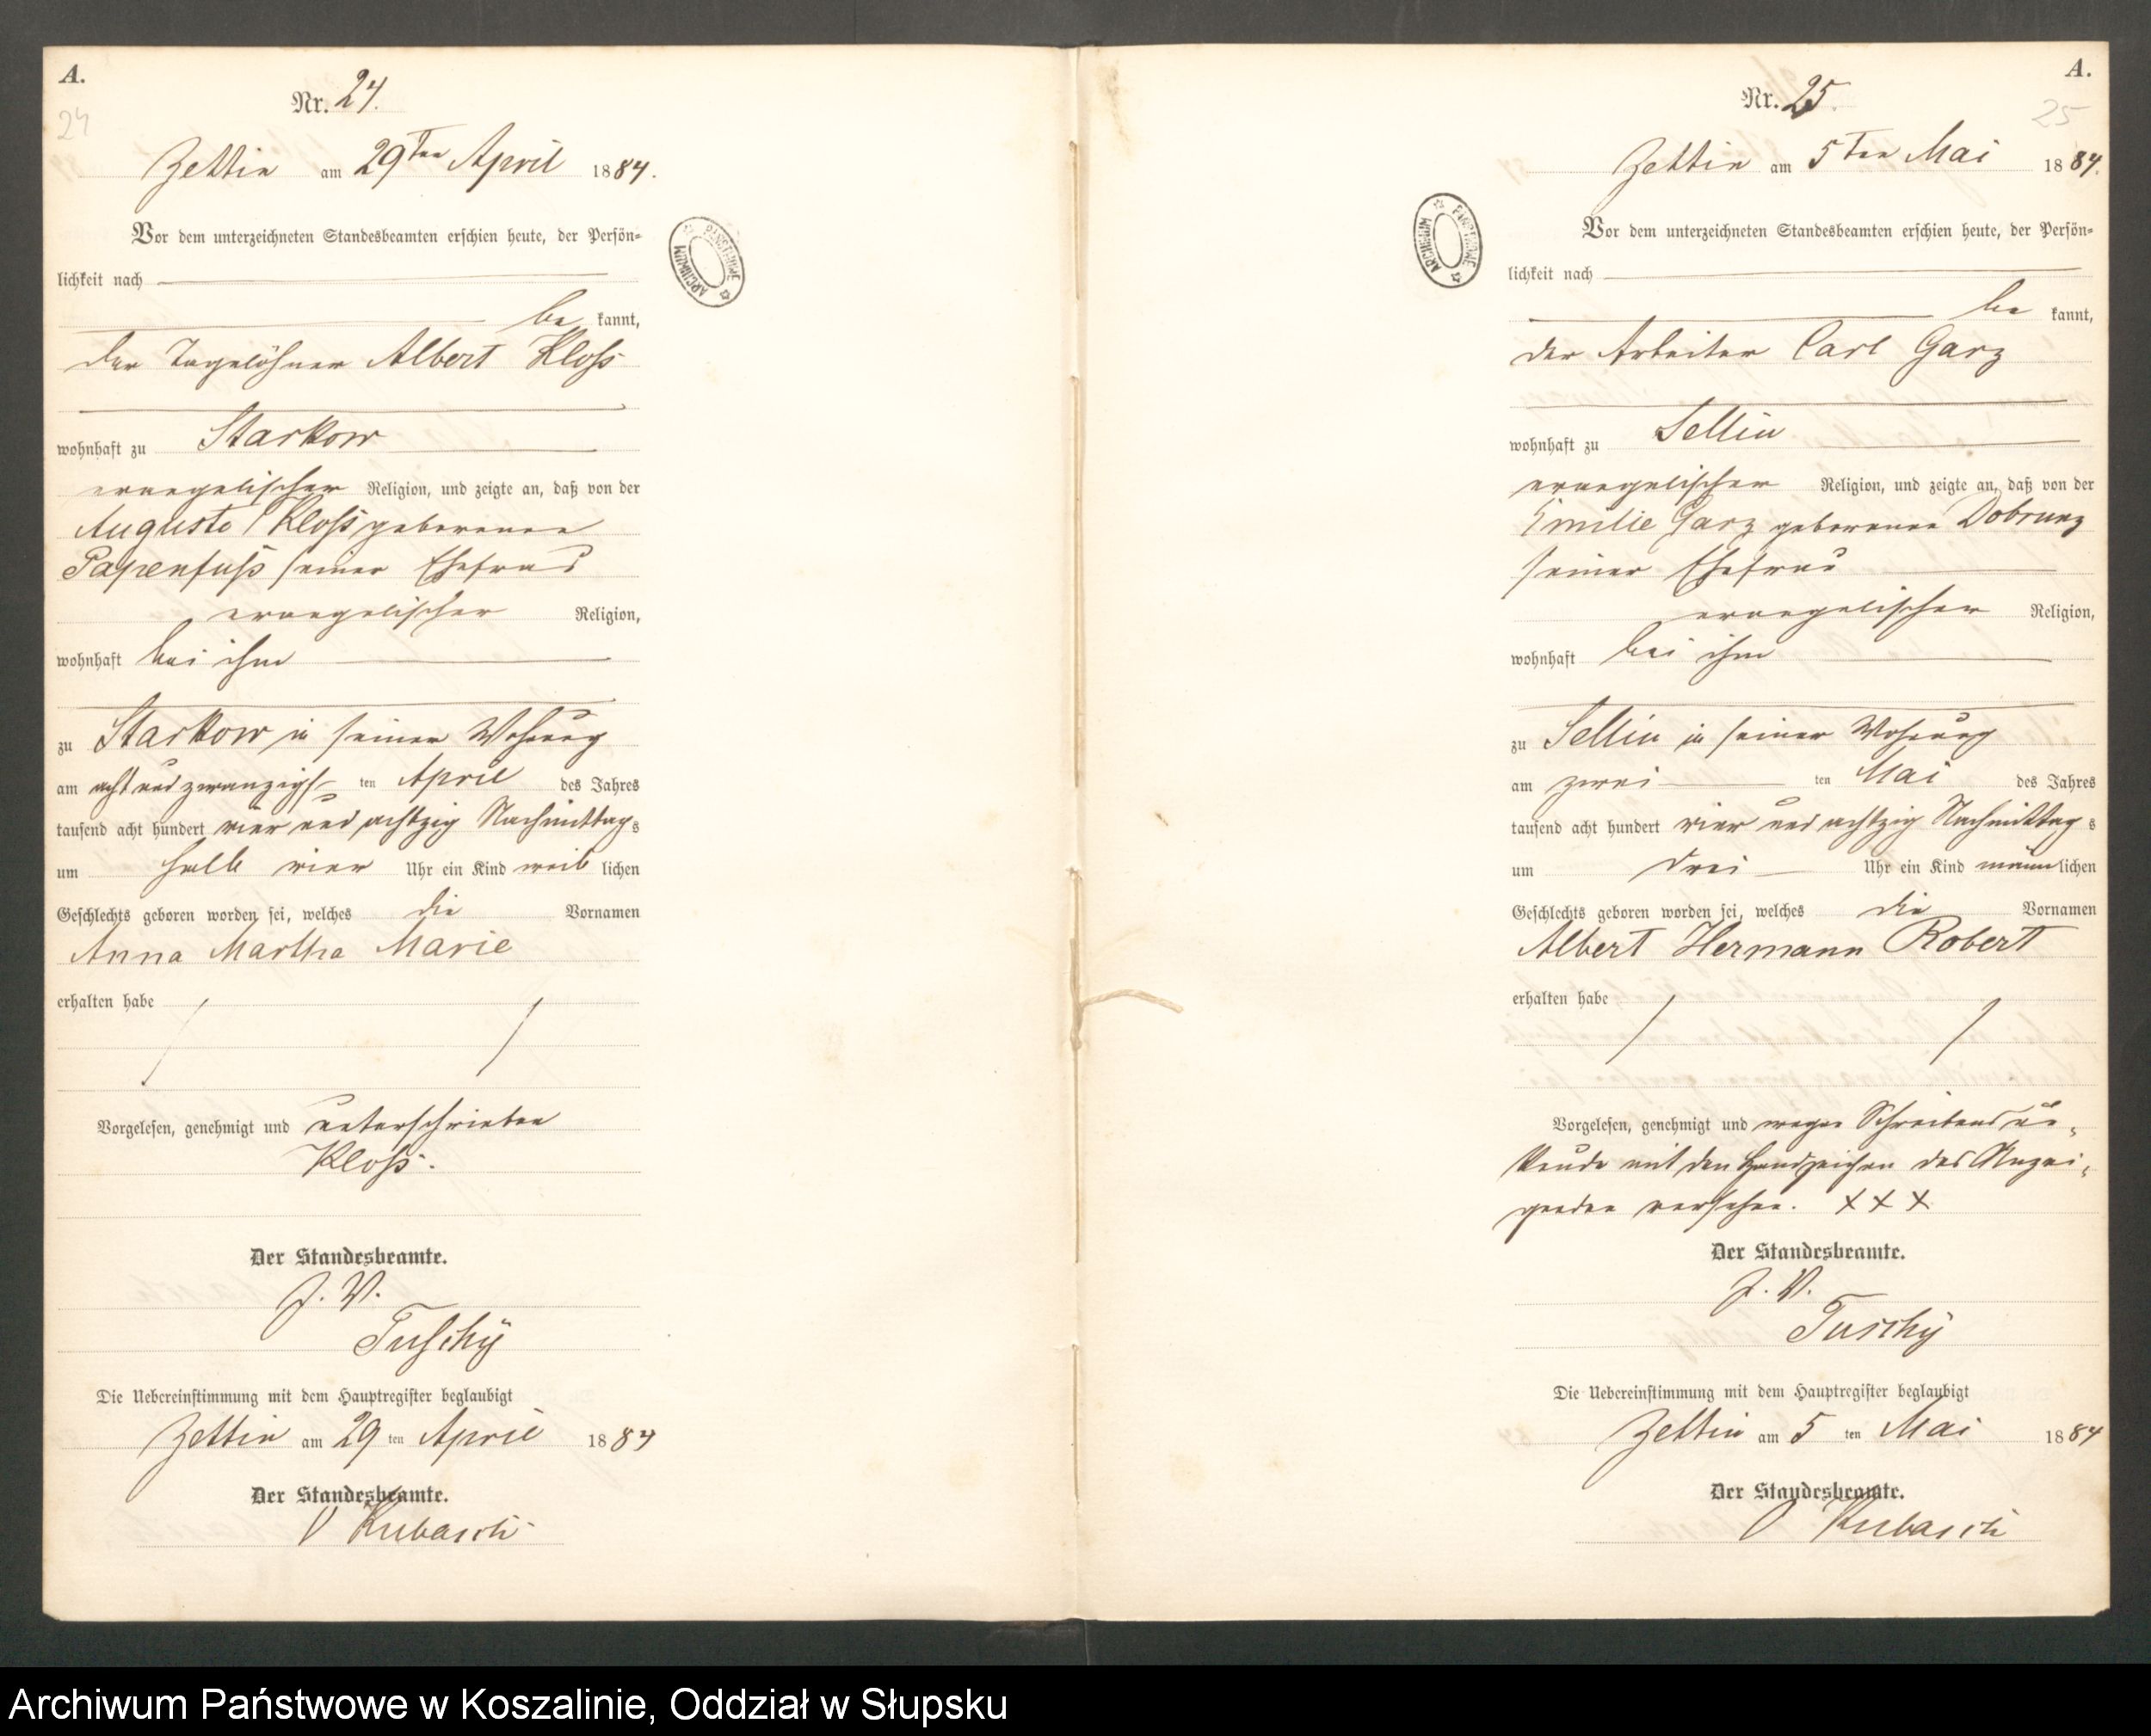 A.
24
Nr. 24.
Zettin am 29ten April 1884.
Vor dem unterzeichneten Standesbeamten erschien heute, der Persön=
lichkeit nach
be kannt,
der Tagelöhner Albert Kloß
wohnhaft zu Starkow
evangelischer Religion, und zeigte an, daß von der
Auguste Kloß geborenen
Papenfuß seiner Ehefrau
evangelischer Religion,
wohnhaft bei ihm
zu Starkow in seiner Wohnung
am acht und zwanzigs ten April des Jahres
tausend acht hundert vier und achtzig Nachmittags
um halb vier Uhr ein Kind weib lichen
Geschlechts geboren worden sei, welches die Vornamen
Anna Martha Marie
erhalten habe
Vorgelesen, genehmigt und unterschrieben
Kloß.
Der Standesbeamte.
J. V.
Tuschy
Die Uebereinstimmung mit dem Hauptregister beglaubigt
Zettin am 29 ten April 1884
Der Standesbeamte.
Kubasch
ARCHIWUM PAŃSTWOWE
A.
25
Nr. 25.
Zettin am 5ten Mai 1884.
Vor dem unterzeichneten Standesbeamten erschien heute, der Persön=
lichkeit nach
be kannt,
der Arbeiter Carl Garz
wohnhaft zu Sellin
evangelischer Religion, und zeigte an, daß von der
Emilie Garz geborenen Dobrunz
seiner Ehefrau
evangelischer Religion,
wohnhaft bei ihm
zu Sellin in seiner Wohnung
am zwei ten Mai des Jahres
tausend acht hundert vier und achtzig Nachmittag s
um drei Uhr ein Kind männlichen
Geschlechts geboren worden sei, welches die Vornamen
Albert Hermann Robert
erhalten habe
Vorgelesen, genehmigt und wegen Schreibens un=
kunde mit den Handzeichen des Anzei=
genden versehen. XXX
Der Standesbeamte.
J. V.
Tuschy
Die Uebereinstimmung mit dem Hauptregister beglaubigt
Zettin am 5 ten Mai 1884
Der Standesbeamte.
Kubasch
ARCHIWUM PAŃSTWOWE
Archiwum Państwowe w Koszalinie, Oddział w Słupsku